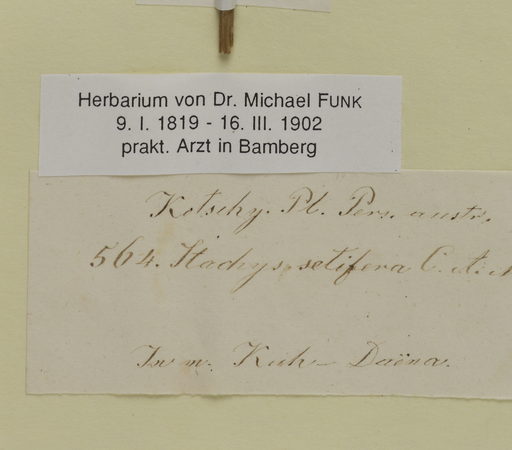 Herbarium von Dr. Michael FUNK
9. I. 1819 - 16. III. 1902
prakt. Arzt in Bamberg
Kotschy. Pl. Pers. austr.
564. Stachys setifera C. A.
In m. Kuh-Daëna.